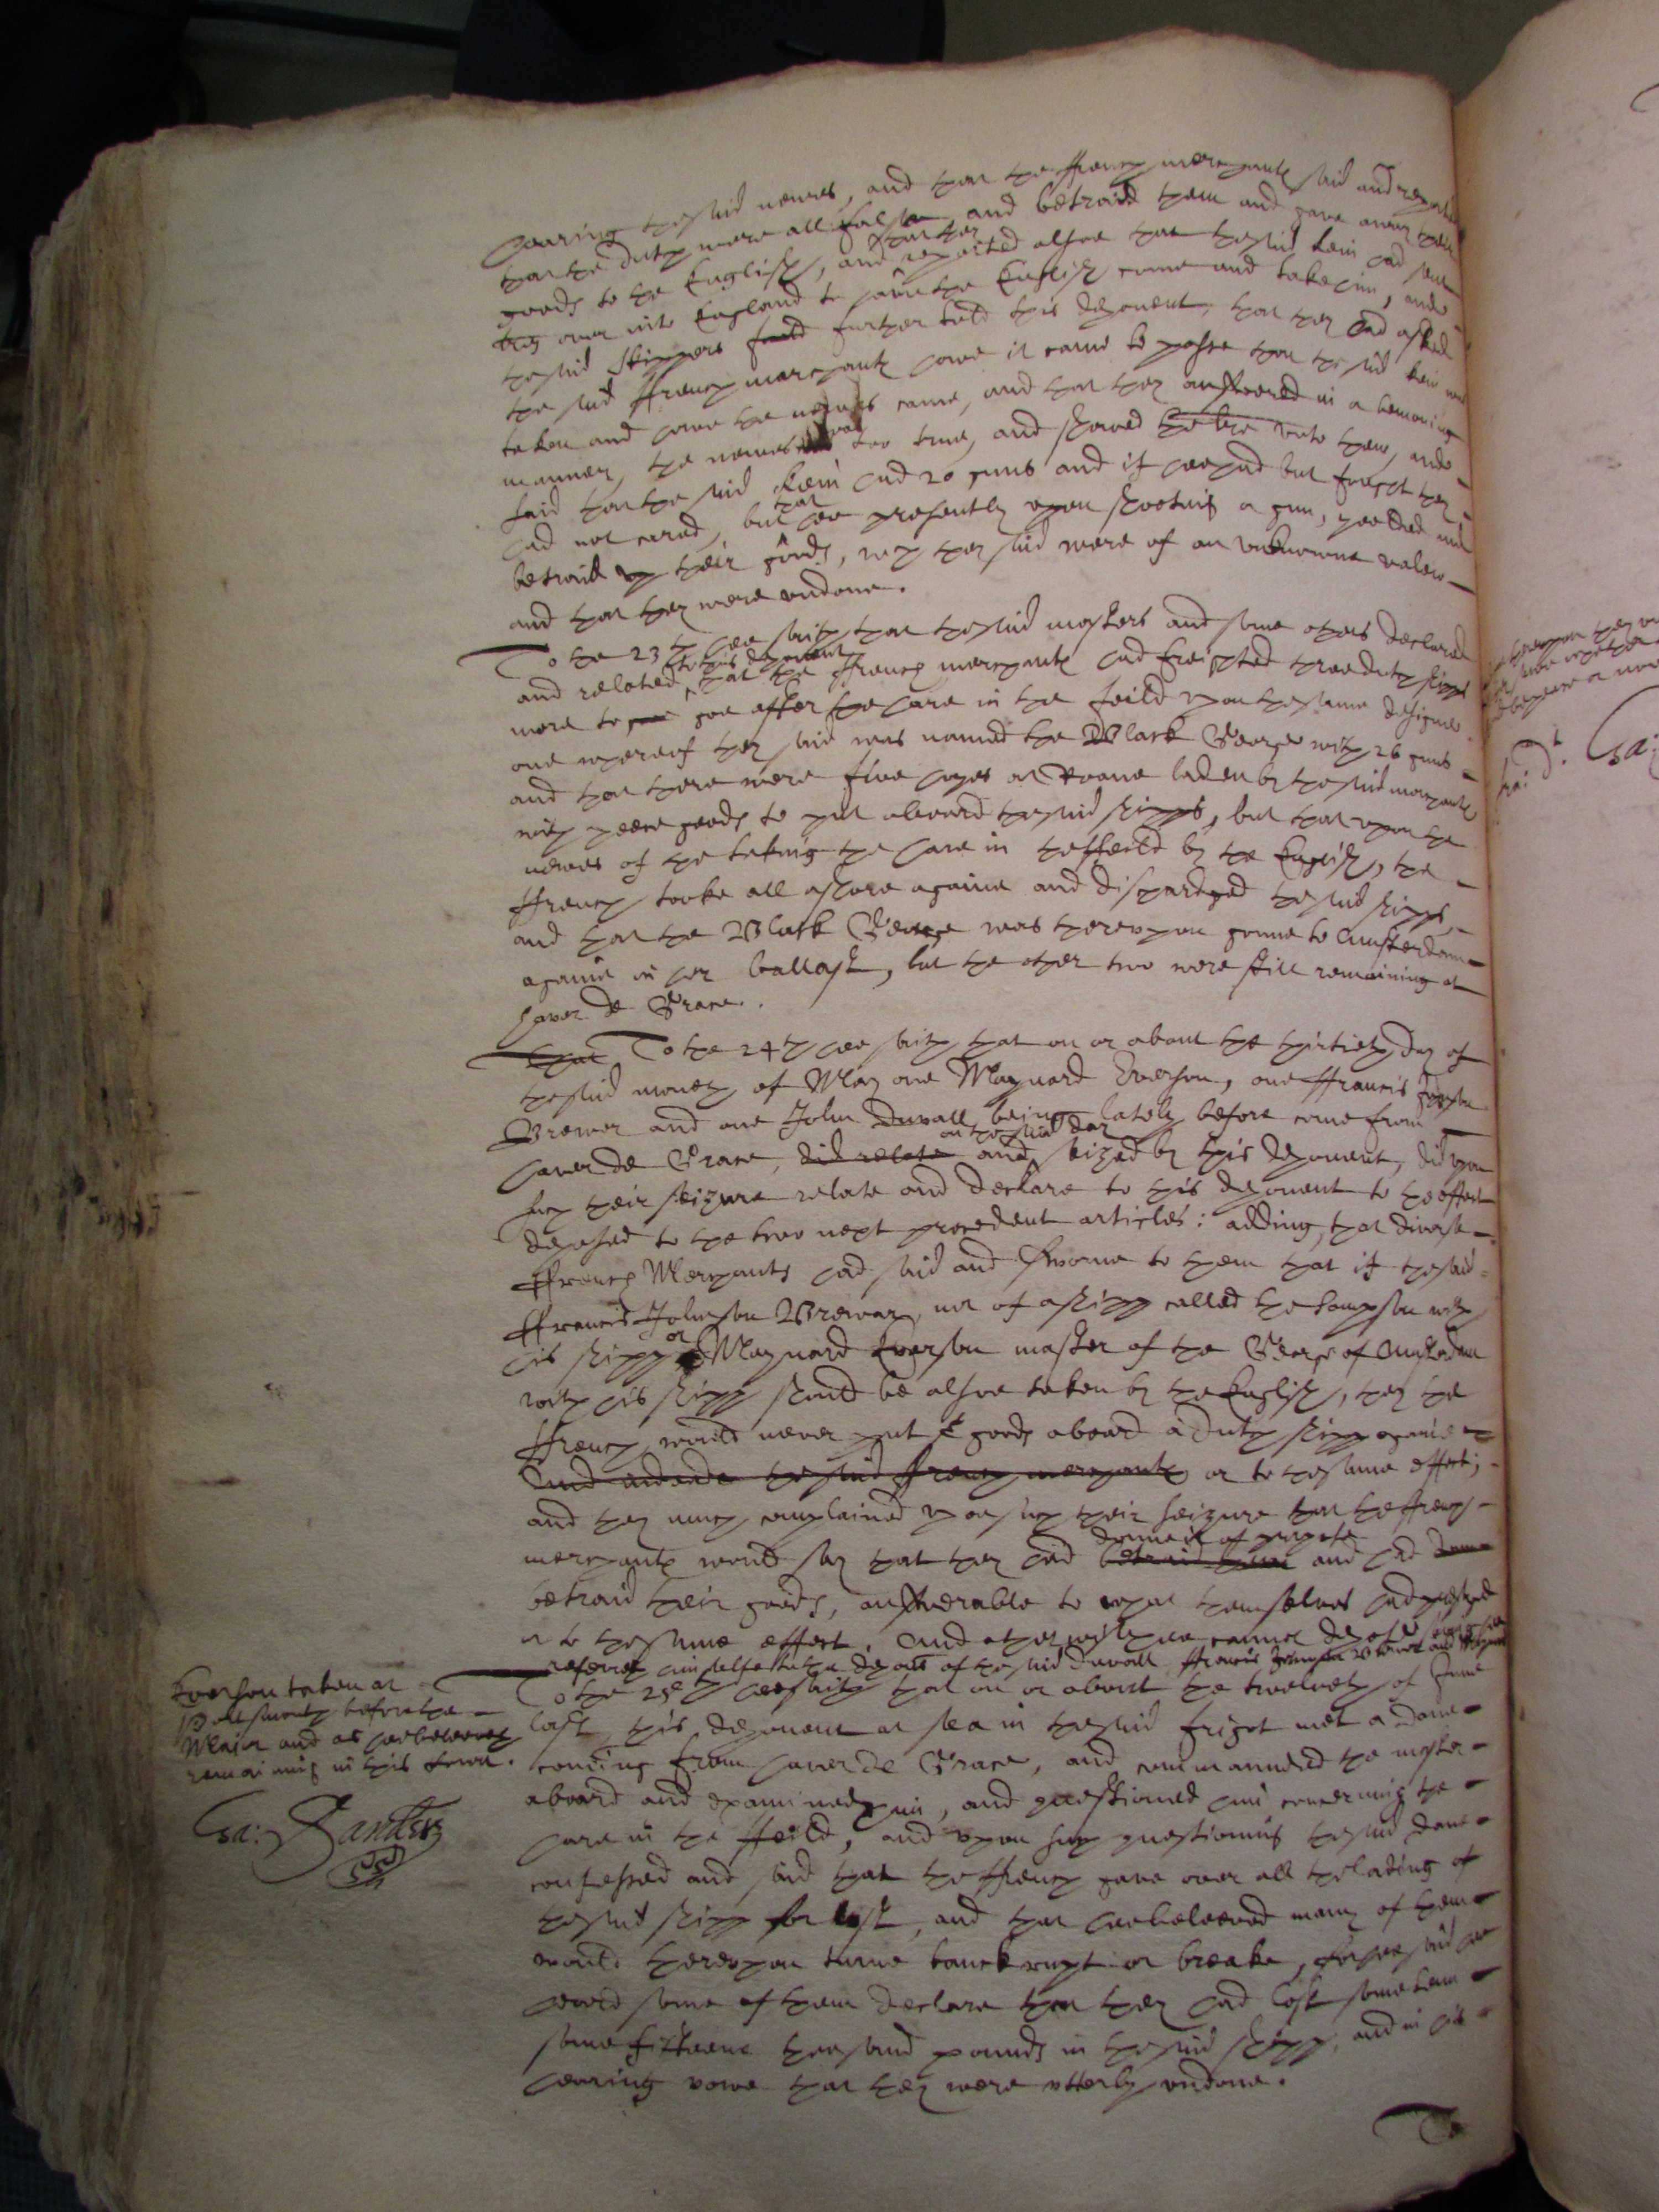 hearing the said newes, and that the ffrench merchants said and reported
that the dutch were all false, and betraied them and gave away their
goods to the English, and ^that they^ reported alsoe that the said Kein had sent
over into England to have the English come and take him, and
the said Skippers further told this deponent, that they had asked
the said ffrench marchants howe it came to passe that the said Kein was
taken and howe the newes came, and that they answered in a
manner, the newes ^was^ too true, and shewed the lre unto them, and
said that the said Kein had 20 guns and if hee had but fought they
had not cared, but ^that^ hee presently upon shooteing a gun, yeelded and
betraid up their goods, wch they said were of an unknowne valew
and that they were undone.
To the 23th hee saith that the said masters and some others declared
and related ^to this deponent^ that the ffrench merchants had freighted three dutch shipps
more to goe after the hare in the feild upon the same designe
one whereof they said was named the Black George with 26 guns
and that there were five hoyes at Roane laden by the said merchants
with peece goods to put aboard the said shipps, but that upon the
newes of the takeing the hare in the ffeild by the English, the
ffrench tooke all ashore againe and dischardged the said shipps,
and that the Black George was thereupon gonne to Amsterdam
againe in her ballast, but the other two were still remaining at
haver de Grace.
To the 24th hee saith that on or about the thirtieth day of
the said moneth of May one Maynard Everson, one ffrancis Johnson
Brewer and one John Duvall being lately before come from
haver de Grace, did relate and ^on the said day^ seized by this deponent, did upon
such their seizure relate and declare to this deponent to the effect
deposed to the two next precedent articles: adding, that diverse
ffrench Merchants had said and sworne to them that if the said
ffrancis Johnson Brewer, mr of a shipp called the Sampson with
his shipp ^or^ Maynard Everson master of the George of Amsterdam
with his shipp should be alsoe taken by the English, they the
ffrench would never put goods aboard a dutch shipp againe
And the said french merchants or to the same effect;
and they much complained upon such their seizure that the ffrench
merchants would say that they had betraid them ^donne it of purpose^ and had
betraid their goods, answerable to what themselves had
or to the same effect. And otherwise hee cannot depose,
referring himselfe to the depons of the said Duvall, ffrancis Johnson Brewer and Maynard
Everson taken at
Portsmouth before the
Maior and as hee beleeveth
remaining in this Court.
Isa: Sanders
To the 25th hee saith that on or about the twelveth of June
last, this deponent at sea in the said frigot met a Dane
coming from haver de Grace, and commaunded the master
aboard and examined him, and questioned him concerning the
hare in the ffeild, and upon such questioning the said Dane
confessed and said that the ffrench gave over all the lading of
the said shipp for lost, and that hee beleeved many of them
would thereupon turne banckrupt or breake, for hee said hee
heard some of them declare that they had lost some tenn
some fifteene thousand pounds in the said shipp, and in his
hearing vowe that they were utterly undone.
To